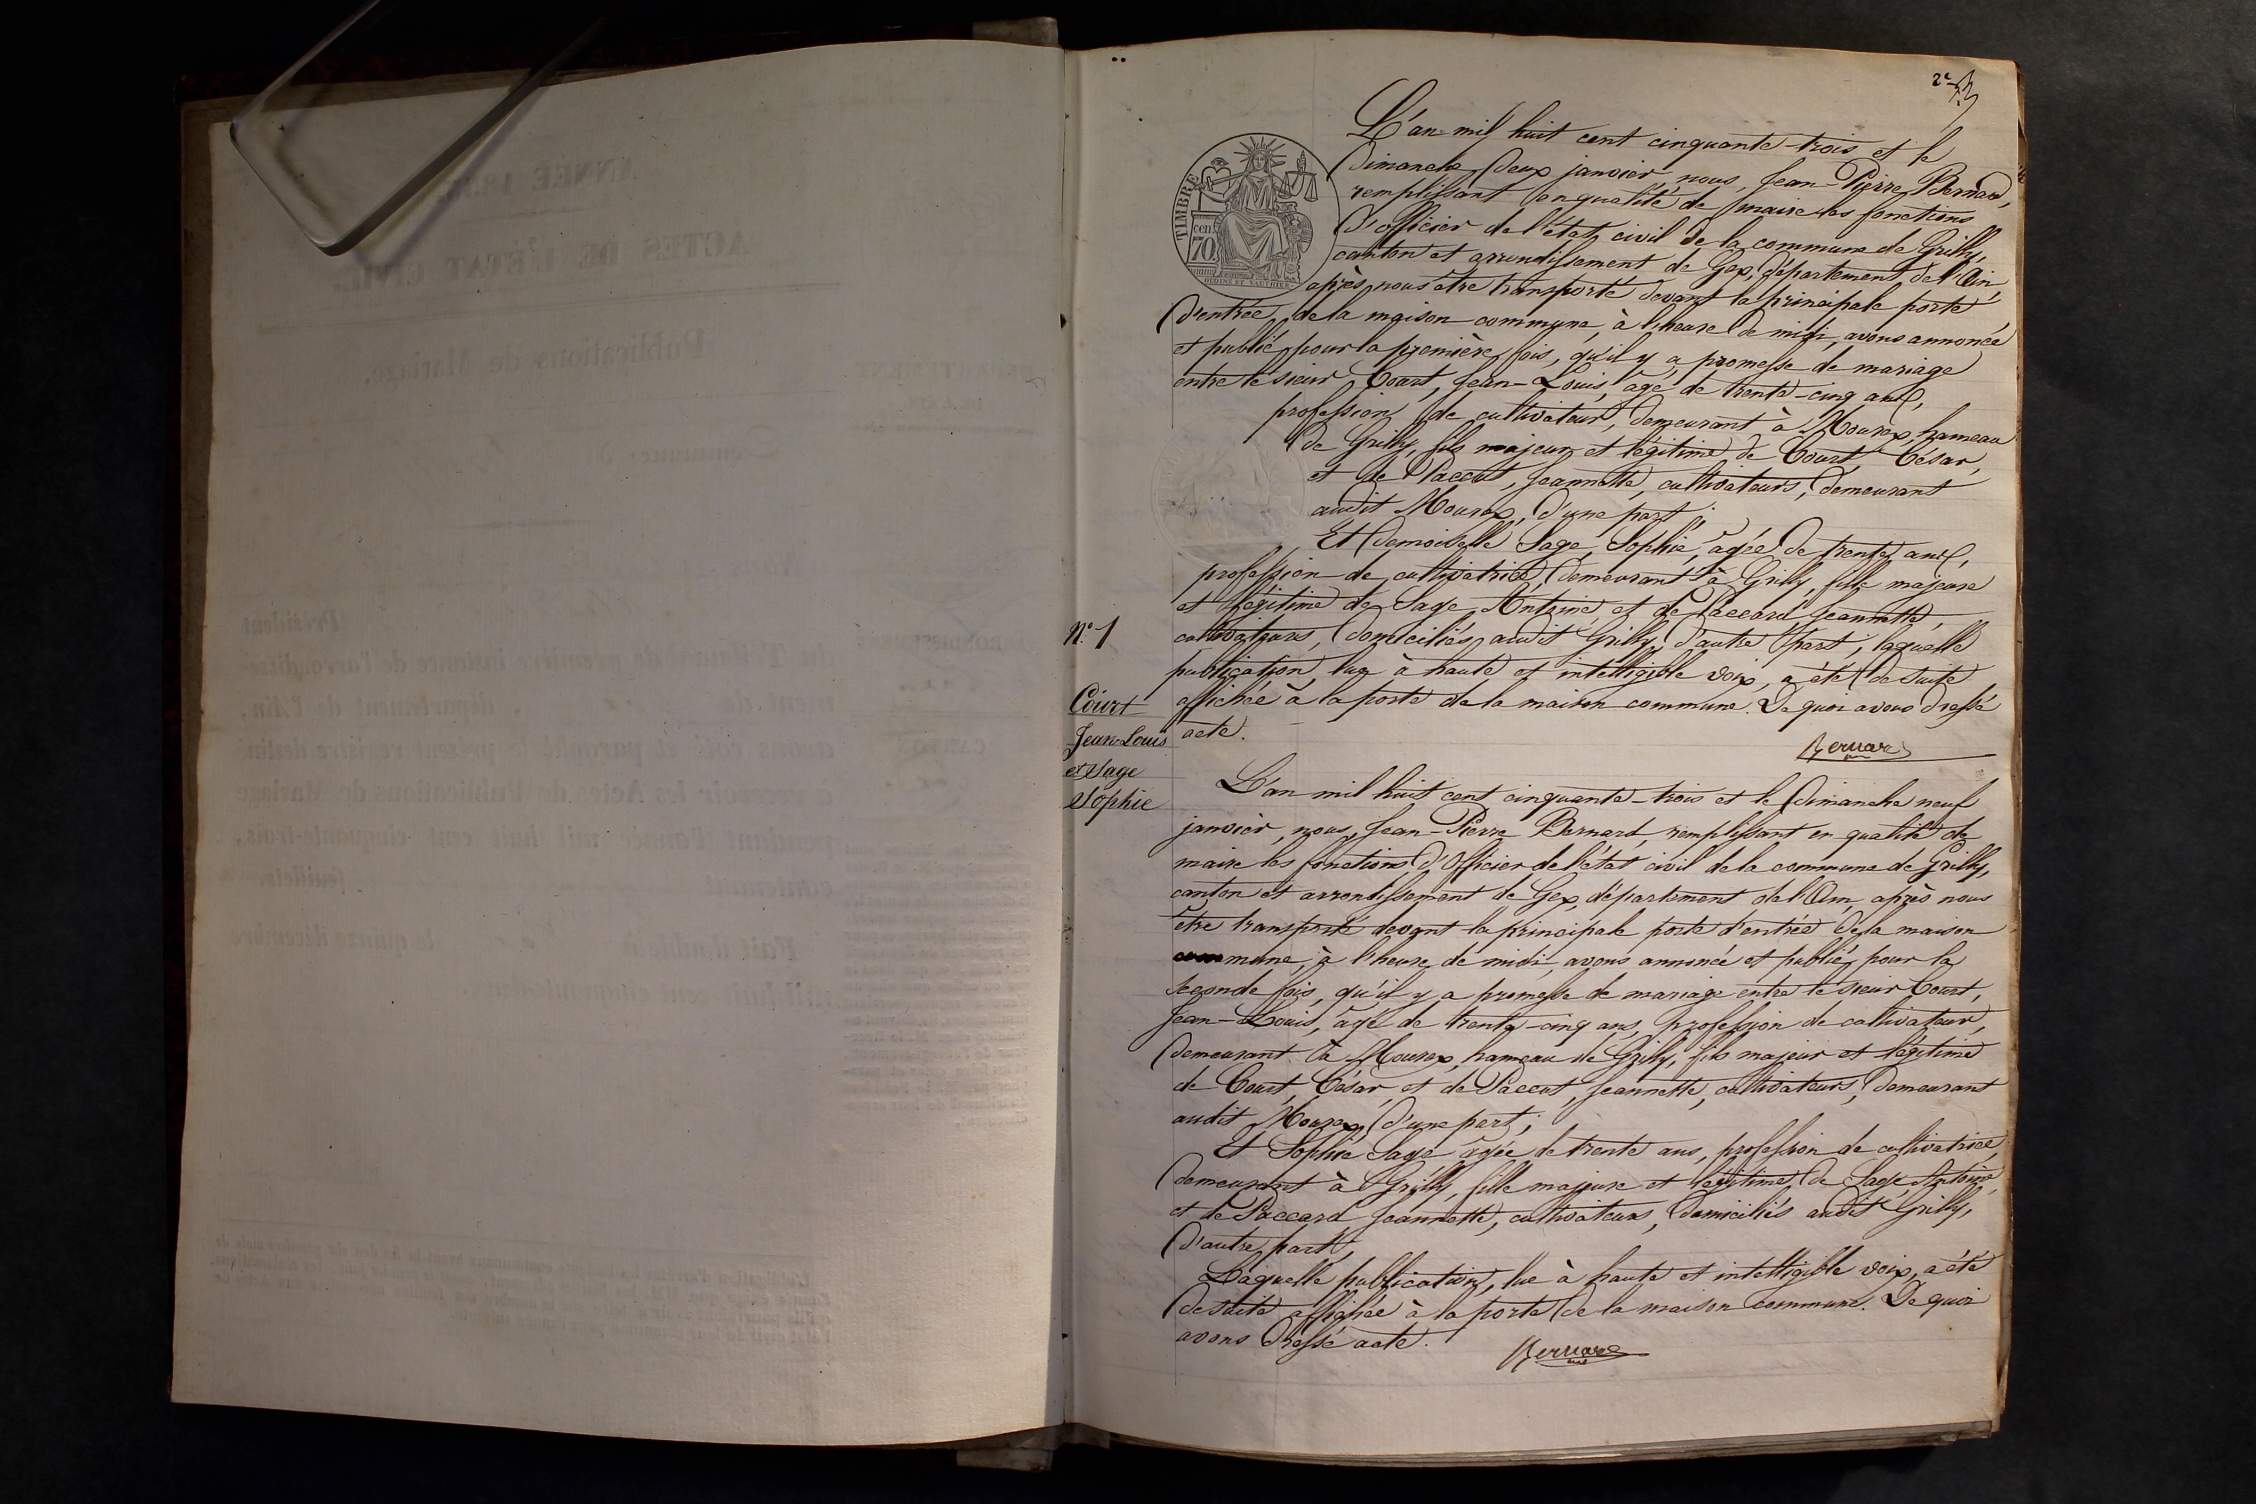 2e
L'an mil huit cent cinquante-trois et le
Dimanche deux janvier, nous, Jean-Pierre Bernard,
remplissant en qualité de maire les fonctions
d'officier de l'état civil de la commune de Grilly,
canton et arrondissement de Gex, département de l'Ain,
après nous être transporté devant la principale porte
d'entrée de la maison commune, à l'heure de midi, avons annoncé
et publié pour la première fois, qu'il y a promesse de mariage
entre le sieur Court, Jean-Louis, âgé de trente-cinq ans,
profession de cultivateur, demeurant à Mourex, hameau
de Grilly, fils majeur et légitime de Court César,
et de Paccot, Jeannette, cultivateurs, demeurant
audit Mourex, d'une part;
Et demoiselle Sage, Sophie, âgée de trente ans,
profession de cultivatrice, demeurant à Grilly, fille majeure
et légitime de Sage, Antoine et de Paccard Jeannette,
cultivateurs, domiciliés audit Grilly, d'autre part, laquelle
publication, lue à haute et intelligible voix, a été de suite
affichée à la porte de la maison commune. De quoi avons dressé
acte.
Bernard
N° 1
Court
Jean-Louis
et Sage
Sophie
L'an mil huit cent cinquante-trois et le dimanche neuf
janvier, nous, Jean-Pierre Bernard, remplissant en qualité de
maire les fonctions d'Officier de l'état civil de la commune de Grilly,
canton et arrondissement de Gex, département de l'Ain, après nous
être transporté devant la principale porte d'entrée de la maison
commune, à l'heure de midi, avons annoncé et publié pour la
seconde fois, qu'il y a promesse de mariage entre le sieur Court,
Jean-Louis, âgé de trente-cinq ans, profession de cultivateur,
demeurant à Mourex, hameau de Grilly, fils majeur et légitime
de Court, César, et de Paccot, Jeannette, cultivateurs, demeurant
audit Mourex, d'une part;
Et Sophie Sage âgée de trente ans, profession de cultivatrice,
demeurant à Grilly, fille majeure et légitime de Sage Antoine,
et de Paccard, Jeannette, cultivateurs, domiciliés audit Grilly,
d'autre part,
Laquelle publication, lue à haute et intelligible voix, a été
de suite affichée à la porte de la maison commune. De quoi
avons dressé acte.
Bernard
TIMBRE
70 cen.